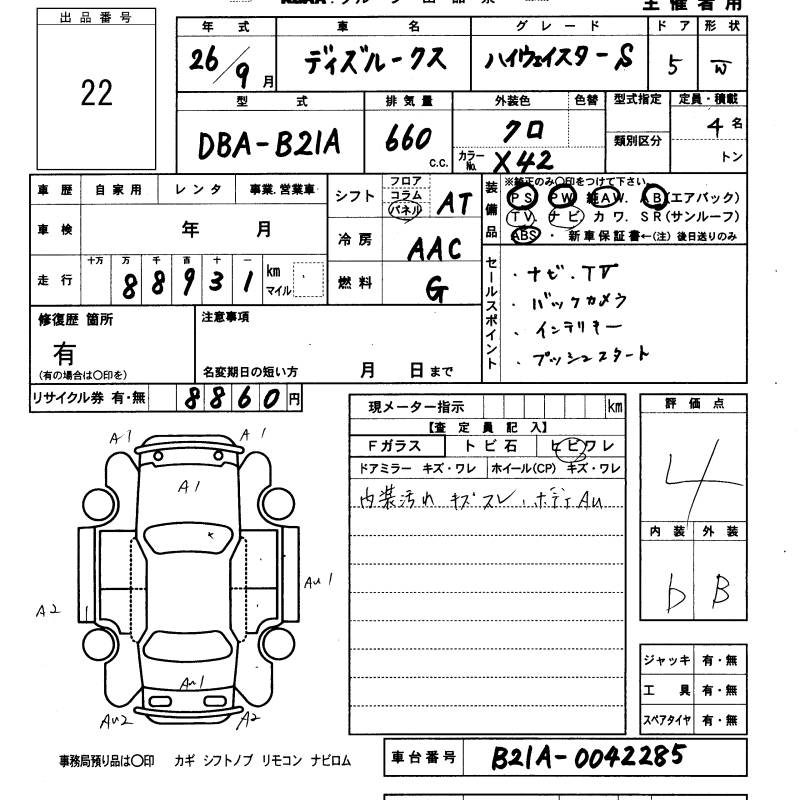 主催者用
出品番号
22
年式 車名 グレード ドア 形状
26/9月 ディズルークス ハイウェイスターS 5 W
型式 排気量 外装色 色替 型式指定 定員・積載
DBA-B21A 660 c.c. クロ カラーNo. X42 類別区分 4名 トン
車歴 自家用 レンタ 事業.営業車
車検 年 月
走行 十万 万 千 百 十 一
88931 km マイル
シフト フロア コラム パネル AT
冷房 AAC
燃料 G
装備品 ※純正のみ○印をつけて下さい。
PS PW 純AW. AB(エアバック)
TV. ナビ カワ. SR(サンルーフ)
ABS ・ 新車保証書←(注) 後日送りのみ
セールスポイント
・ナビ.TV
・バックカメラ
・インテリキー
・プッシュスタート
修復歴 箇所
有
(有の場合は○印を)
注意事項
名変期日の短い方 月 日まで
リサイクル券 有・無 8860円
現メーター指示 km
【査定員記入】
Fガラス トビ石 ヒビワレ
ドアミラー キズ・ワレ ホイール(CP) キズ・ワレ
内装汚れ キズスレ.ボディAU
評価点
4
内装 外装
b B
A1 A1
A1
AU1
A2
AU1
AU2 A2
ジャッキ 有・無
工具 有・無
スペアタイヤ 有・無
事務局預り品は○印 カギ シフトノブ リモコン ナビロム
車台番号 B21A-0042285